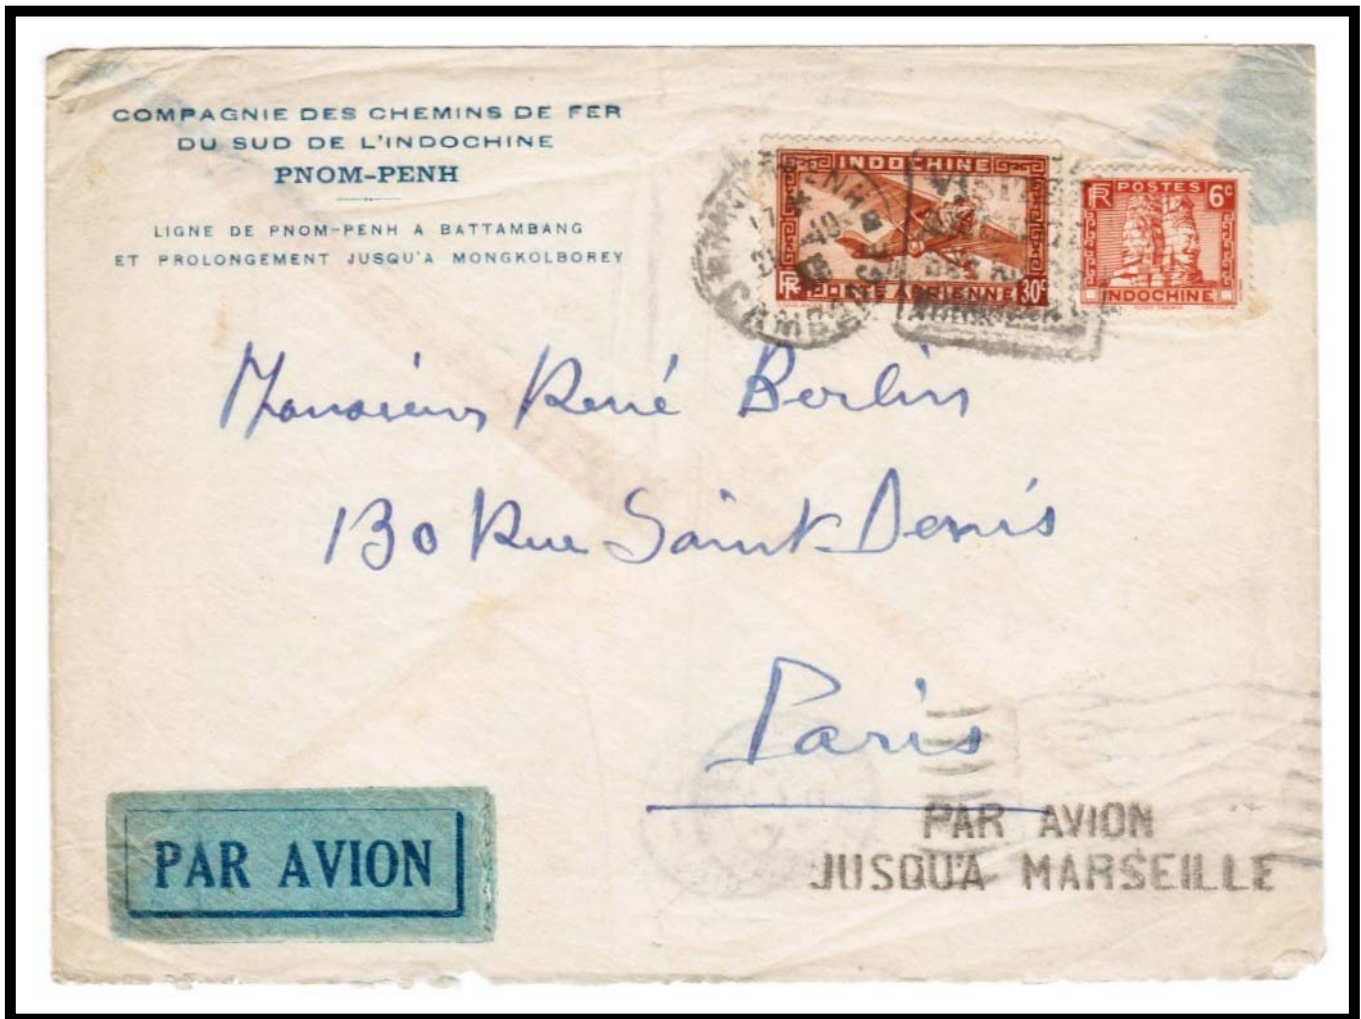 COMPAGNIE DES CHEMINS DE FER
DU SUD DE L'INDOCHINE
PNOM-PENH
LIGNE DE PNOM-PENH A BATTAMBANG
ET PROLONGEMENT JUSQU'A MONGKOLBOREY
INDOCHINE
RF POSTE AERIENNE 30c
RF POSTES 6c
INDOCHINE
Monsieur René Berlin
130 Rue Saint-Denis
Paris
PAR AVION
JUSQU'A MARSEILLE
PAR AVION